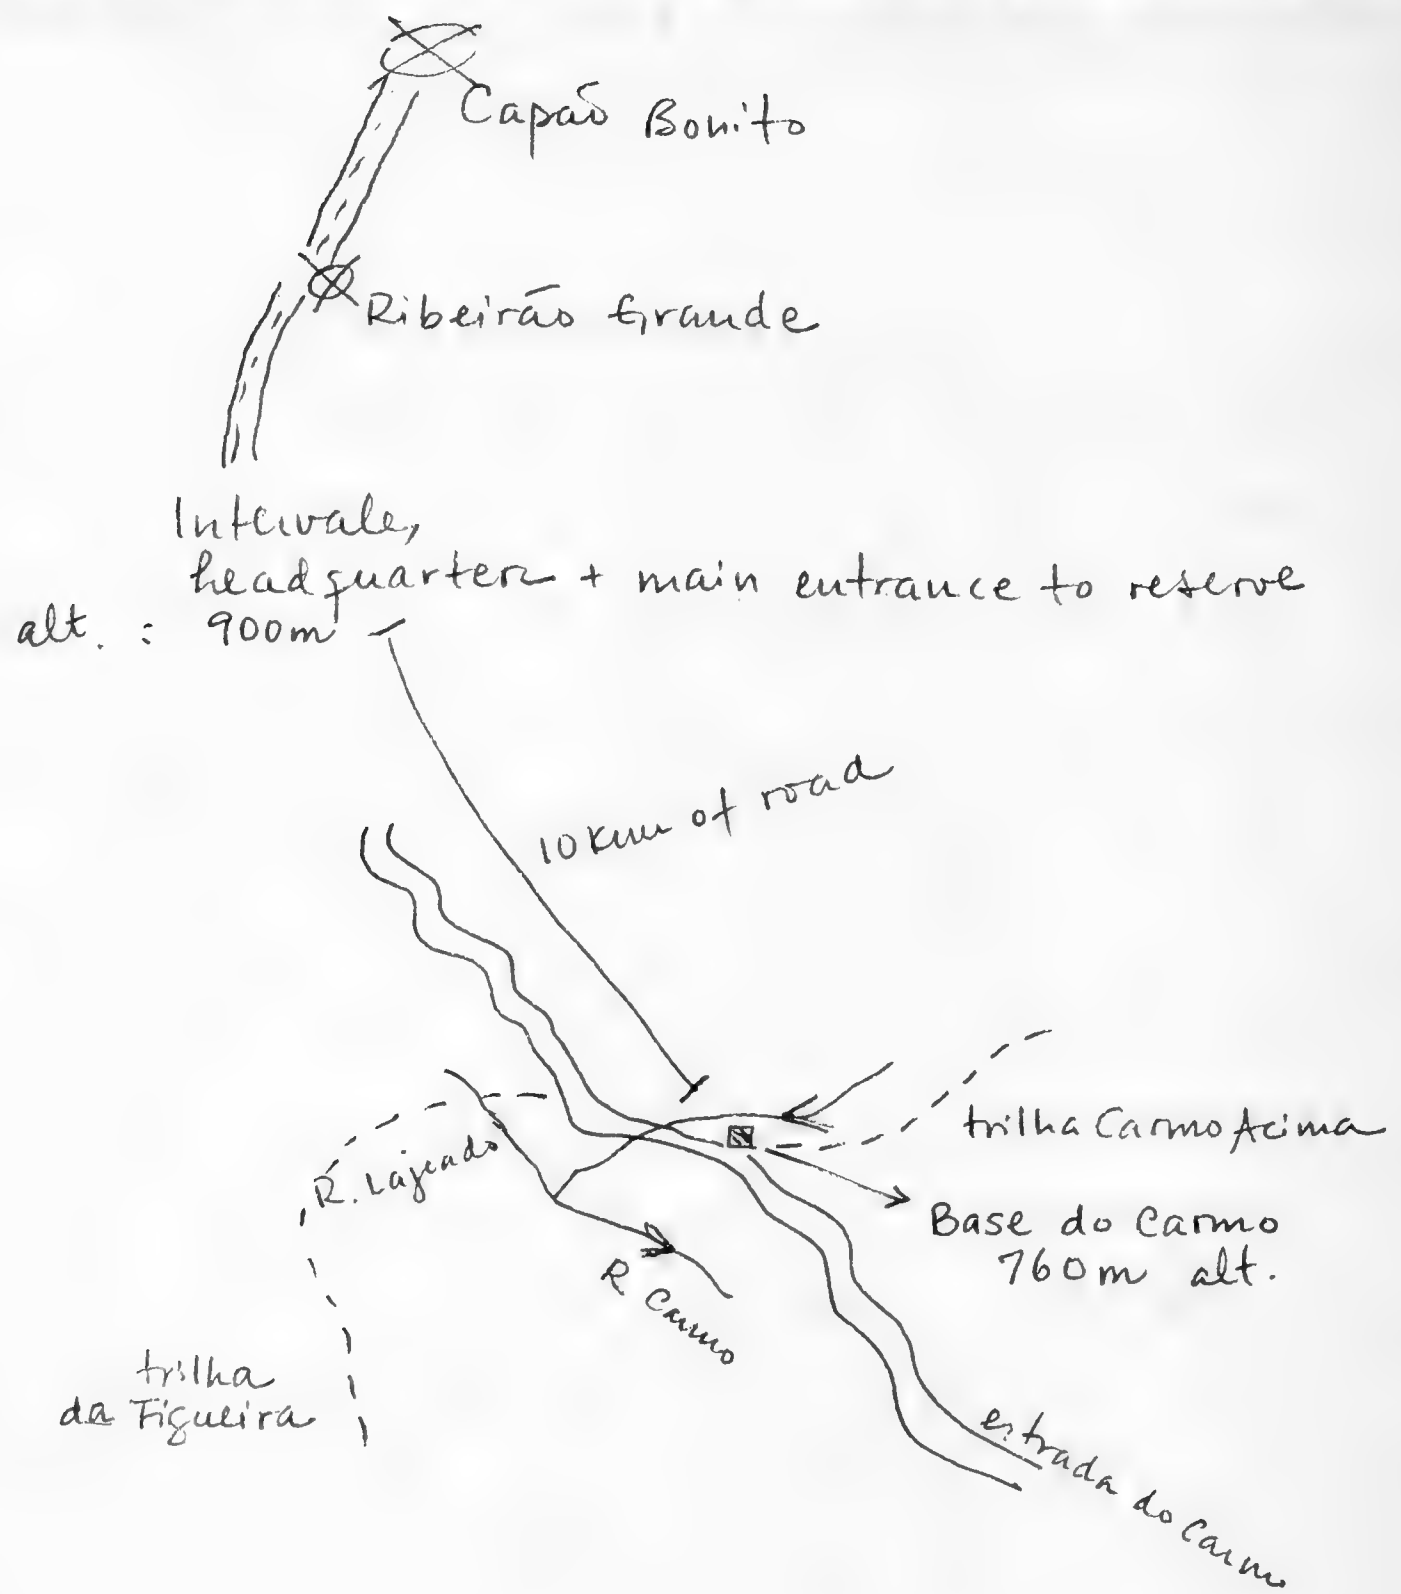 Capaõ Bonito
Ribeirão Grande
Intervale,
headquarters + main entrance to reserve
alt. : 900m
10 km of road
trilha Carmo Acima
R. Lajeado
Base do Carmo
760m alt.
R Carmo
trilha
da Figueira
estrada do Carmo